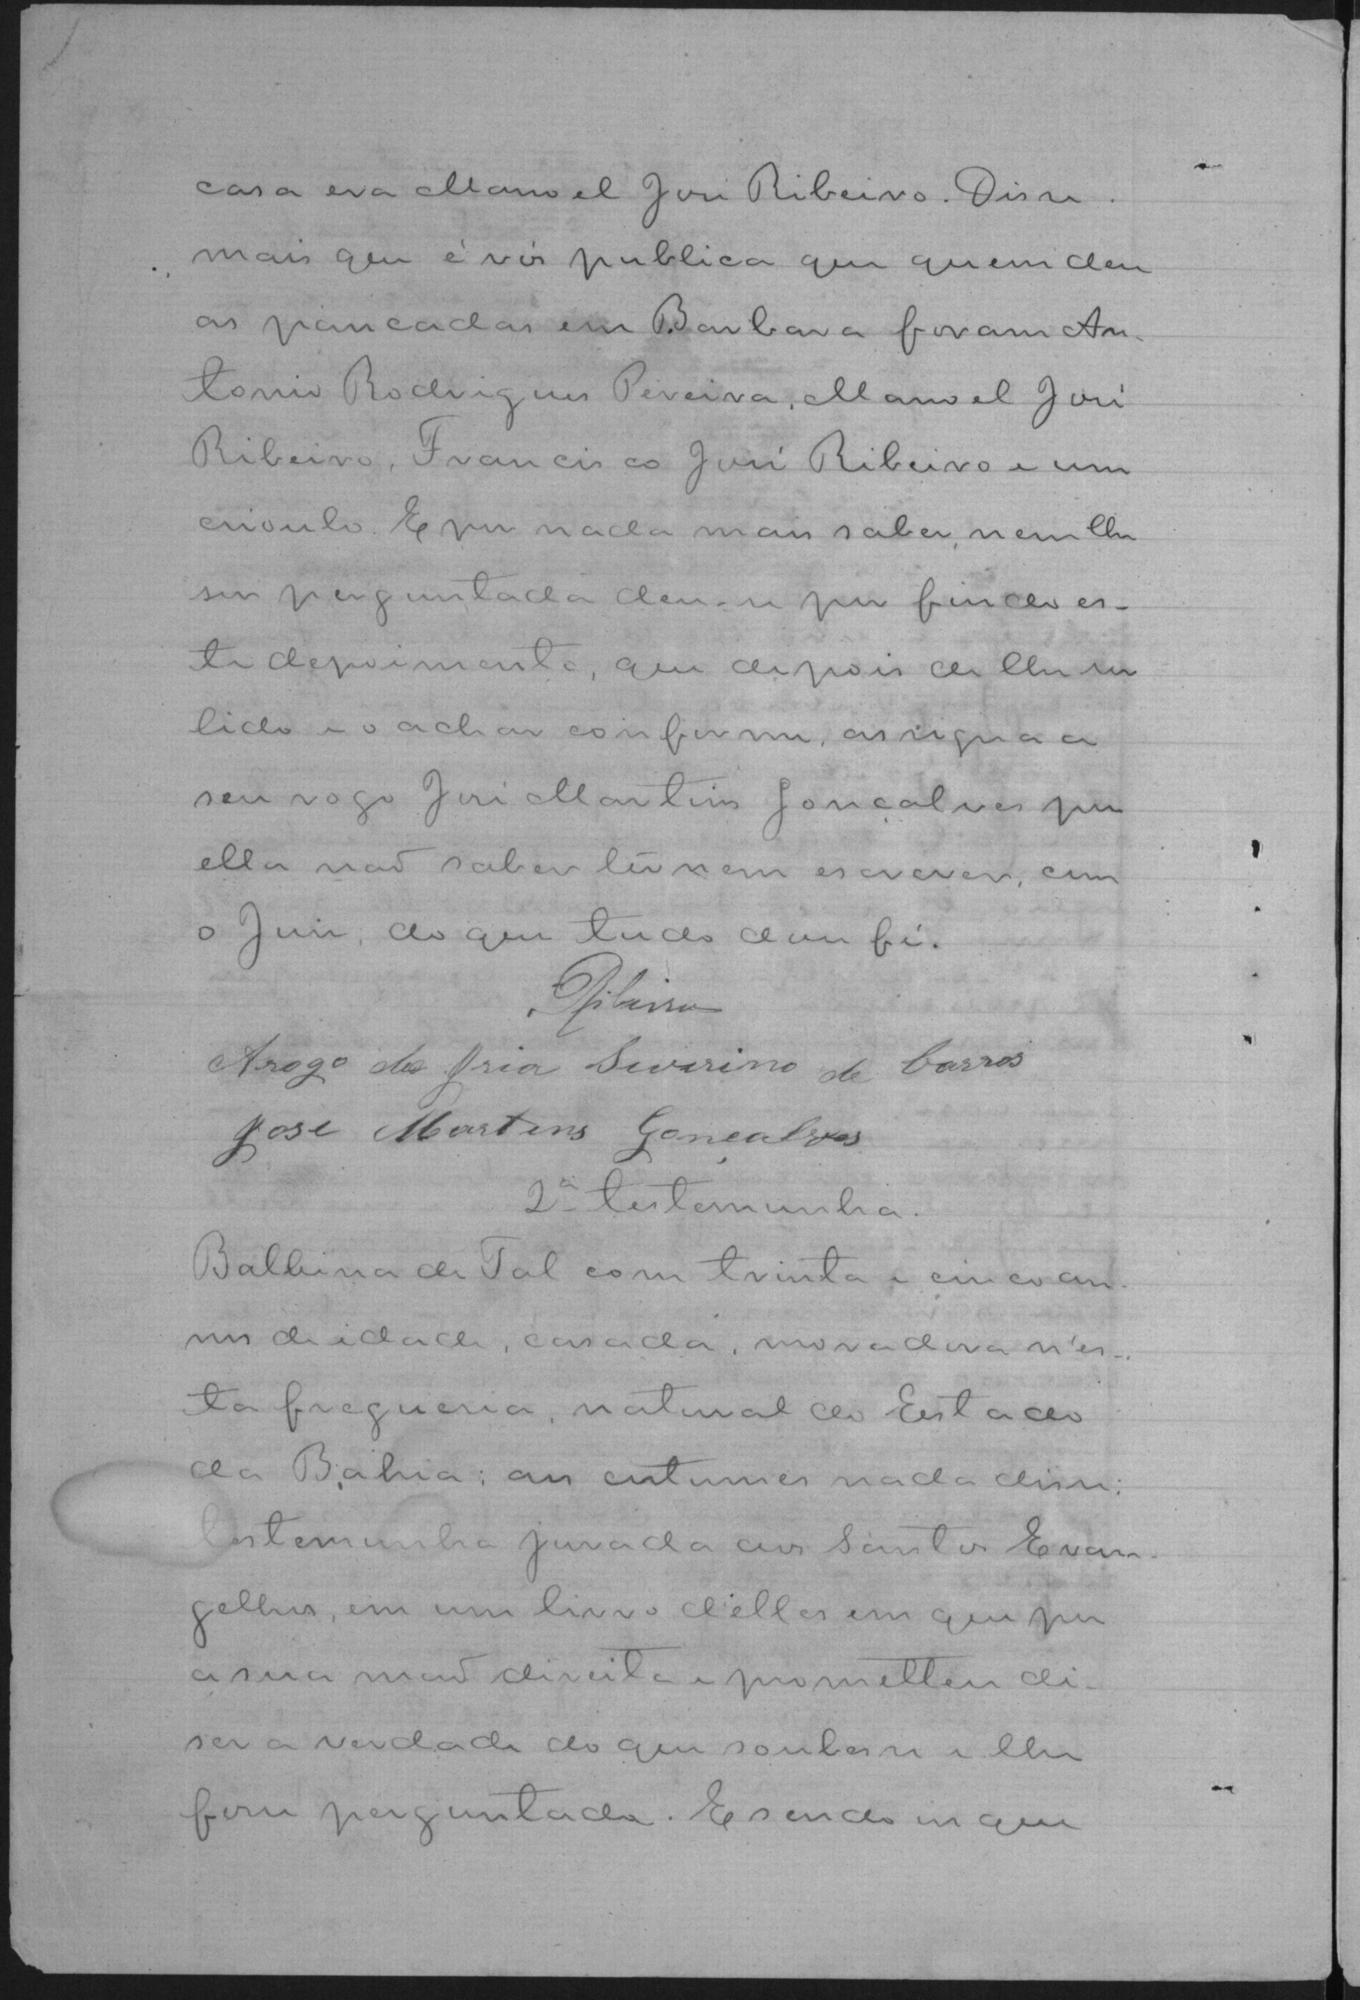 casa era Manoel José Ribeiro. Disse
mais que é vós publica que quem deu
as pancadas em Barbara foram An-
tonio Rodrigues Pereira, Manoel José
Ribeiro, Francisco José Ribeiro e um
crioulo. E por nada mais saber, nem lhe
ser perguntada deu-se por findo es-
te depoimento, que depois de lhe ser
lido e o achar conforme, assigna a
seu rogo José Martins Gonçalves por
ella naõ saber lêr nem escrever, com
o Juis, do que tudo dou fé.
Ribeiro
Arogo de Iria Siverino de barros
José Martens Gonçalves
2ª testemunha.
Balbina de Tal com trinta e cinco an-
nos de idade, casada, moradora n'es-
ta freguesia, natural do Estado
da Bahia; aos custumes nada disse;
testemunha jurada aos Santos Evan-
gelhos, em um livro d'elles em que por
a sua maõ direita e prometteu di-
ser a verdade do que soubesse e lhe
fosse perguntado. E sendo in que